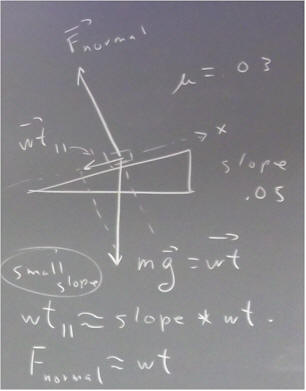 F normal
μ = .03
wt ||
x
slope
.05
mg = wt
small slope
wt || ≈ slope * wt.
F normal ≈ wt